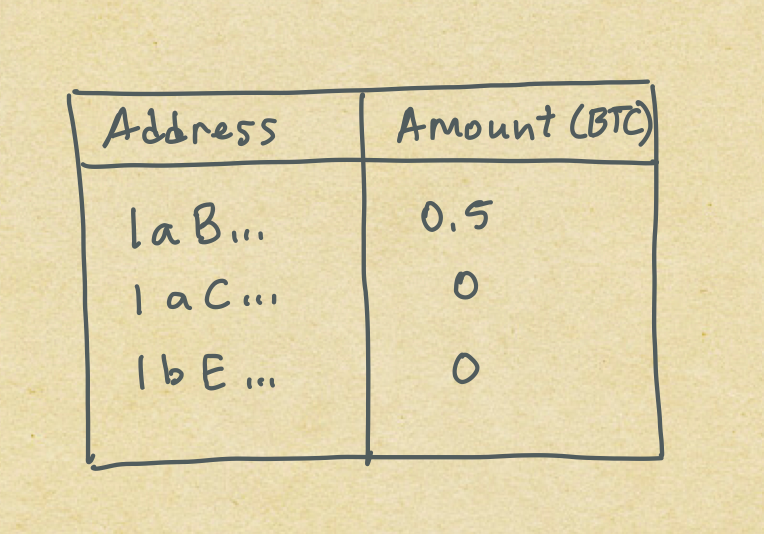 Address Amount (BTC)
1aB... 0.5
1aC... 0
1bE... 0